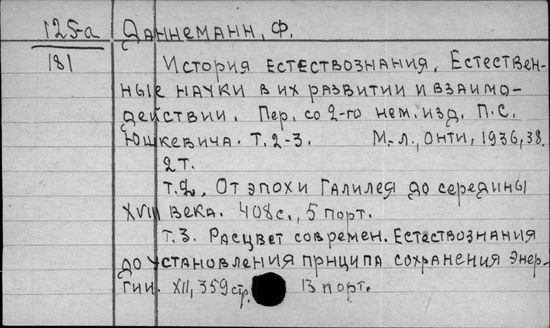 125-а Даннеманн, Ф.
181 История естествознания. Естествен-
ные науки в их развитии и взаимо-
действии. Пер. со 2-го нем. изд. П.С.
Юшкевича. Т.2-3. М.-Л., ОНТИ, 1936, 38.
2 т.
Т.2. От эпохи Галилея до середины
XVIII века. 408 с., 5 порт.
Т.3. Расцвет современ. Естествознания
до установления прнципа сохранения энер-
гии. XII, 359 стр. 13 порт.